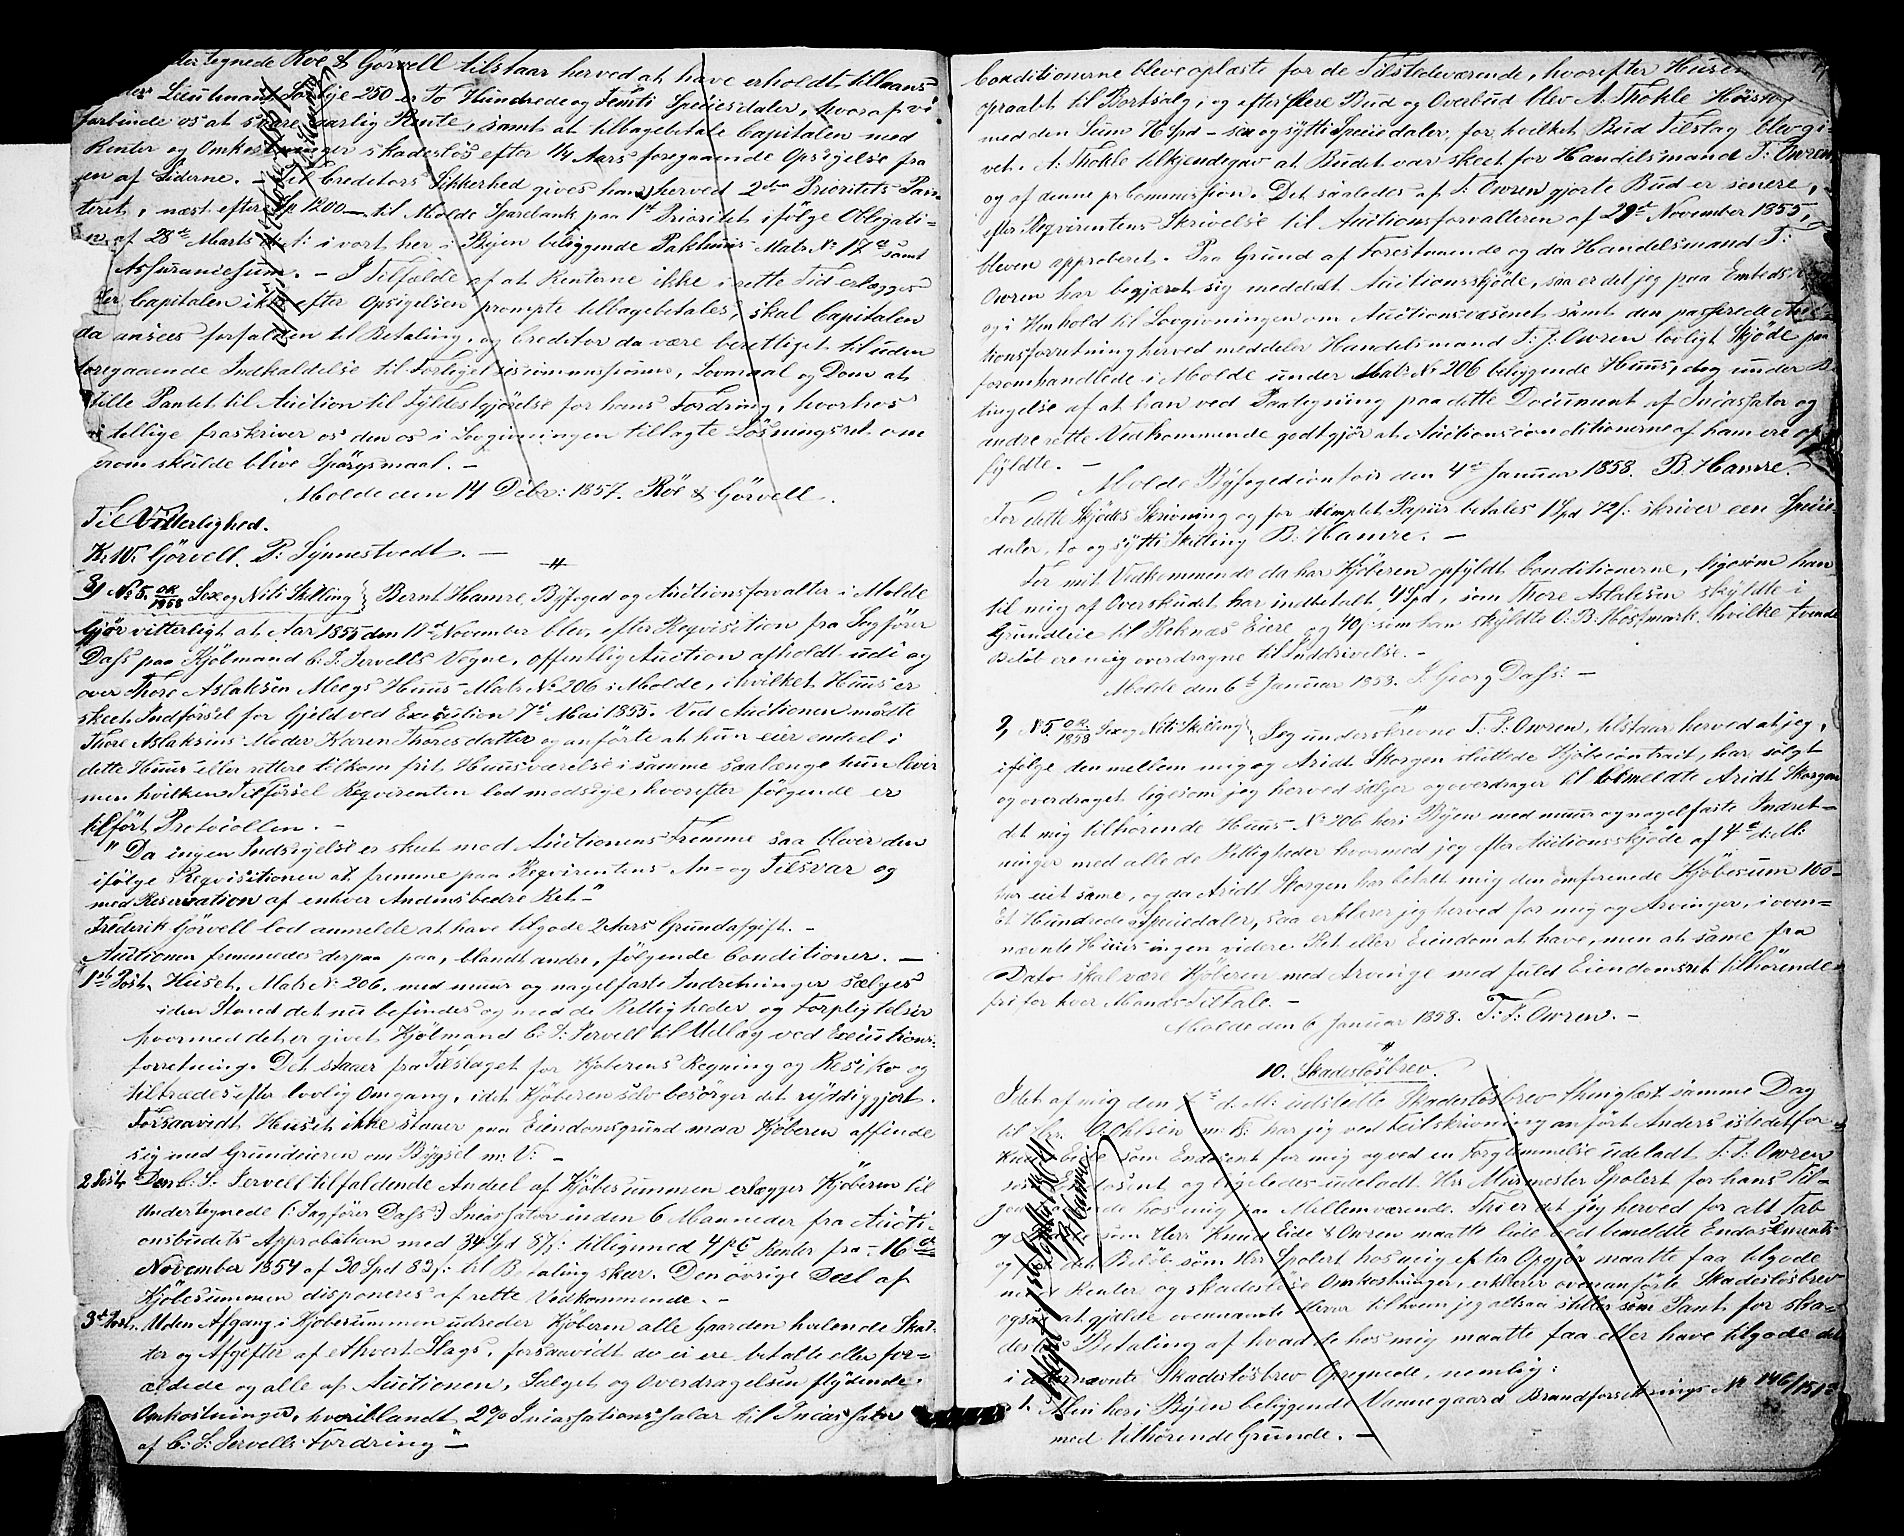 tegnede Röe & Görvell tilstaar herved at have erholdt tillaans
Lieutenant Torkje 250 er To Hundrede og Femti Speciesdaler, hvoraf vi
forbinde os at svare aarlig Rente, samt at tilbagebetale Capitalen med
Renter og Omkostninger skadeslös efter 1/4 Aars foregaaende Opsigelse fra
en af Siderne. – Til Creditors Sikkerhed gives ham herved 2den Prioritets Pan-
teret, næst efter Sp 1200 – til Molde Sparebank paa 1st Prioritet ifölge Obligati-
on af 28de Marts i vort her i Byen beliggende Pakhuus Matr No 17a samt
Assurancesum. – I Tilfælde af at Renterne ikke i rette Tid erlægges
eller Capitalen ikke efter Opsigelsen prompte tilbagebetales, skal Capitalen
da ansees forfalden til Betaling, og Creditor da være berettiget til uden
foregaaende Indkaldelse til Forligelsescommission, Lovmaal og Dom at
stille Pantet til Auction til Fyldestgjörelse for hans Fordring, hvorhos
vi tillige fraskriver os den os i Lovgivningen tillagte Lösningsret om
derom skulde blive Spörgsmaal. –
Molde den 14 Decbr: 1857. Röe & Görvell.
Til Vitterlighed.
K. W. Görvell. P: Synnestvedt. –
8) No 5. OR/1858 Sex og Niti Skilling} Bernt Hamre, Byfoged og Auctionsforvalter i Molde
Gjör vitterligt at Aar 1855 den 17de November blev, efter Reqvisition fra Sagförer
Dass paa Kjölmand C. S. Jervells Vegne, offentlig Auction afholdt udi og
over Thore Aslaksen Meegs Huus Matr No 206 i Molde, i hvilket Huus er
skeet Indförsel for Gjeld ved Execution 7de Mai 1855. Ved Auctionen mödte
Thore Aslaksens Moder Karen Thoresdatter og anförte at hun eier endeel i
dette Huus eller rettere tilkom frit Huusværelse i samme saalænge hun lever
men hvilken Tilförsel Reqvirenten lod modsige, hvorefter fölgende er
tilfört Protocollen. –
" Da ingen Indsigelse er skeet mod Auctionens Fremme saa bliver den
ifölge Reqvisitionen at fremme paa Reqvirentens An- og Tilsvar og
med Reservation af enhver Andens bedre Ret"
Frederik Görvell lod anmelde at have tilgode 2 Aars Grundafgift. –
Auctionen fremmedes derpaa paa, blandt andre, fölgende Conditioner. –
1ste Post. Huset, Matr No 206, med muur og nagelfaste Indretninger sælges
i den Stand det nu befindes og med de Rettigheder og Forpligtelser
hvormed det er givet Kjölmand C. S. Jervell til Udlæg ved Executions-
forretning. Det staaer fra Tilslaget for Kjöberens Regning og Resiko og
tiltrædes efter lovlig Omgang, idet Kjöberen selv besörger det ryddiggjort.
Forsaavidt Huset ikke staaer paa Eiendomsgrund maa Kjöberen affinde
sig med Grundeieren om Bygsel m: V: –
2 Post. Den C. S. Jervell tilfaldende Andeel af Kjöbesummen erlægger Kjöberen til
Undertegnede (: Sagförer Dass :) Incassator inden 6 Maaneder fra Aucti-
onsbudets Approbation med 34 Spd 87 s: tilligemed 4 p C Renter fra 16de
November 1854 af 20 Spd 82 s: til Betaling skeer. Den övrige Deel af
Kjöbesummen disponeres af rette Vedkommende. –
3de Post. Uden Afgang i Kjöbesummen udreder Kjöberen alle Gaarden hvilende Skat-
ter og Afgifter af ethvert Slags, forsaavidt de ei ere betalte eller for-
ældede og alle af Auctionen, Salget og Overdragelsen flydende
Omkostninger, hvoriblandt 2% Incassationssalær til Incassator
af C: S: Jervells Fordring" –
Conditionerne bleve oplæste for de Tilstedeværende, hvorefter Huset
opraabt til Bortsalg, og efter flere Bud og Overbud blev A. Thokle Höistby
med den Sum 76 Spd – sex og sytti Speciedaler, for hvilket Bud Tilslag blev gi-
vet. A. Thokle tilkjendegav at Budet var skeet for Handelsmand T: Owren
og af denne pr Commission. Det saaledes af T: Owren gjorte Bud er senere,
efter Reqvirentens Skrivelse til Auctionsforvalteren af 29de November 1855,
bleven approberet. Paa Grund af Forestaaende og da Handelsmand T:
Owren har begjæret sig meddelt Auctionsskjöde, saa er det jeg paa Embeds
og i Henhold til Lovgivningen om Auctionsvæsenet samt den passerede Auc-
tionsforretning herved meddeler Handelsmand T. J. Owren lovligt Skjöde paa
foromhandlede i Molde under Matr No 206 beliggende Huus, dog under B
tingelse af at han ved Paategning paa dette Document af Incassator og
andre rette Vedkommende godtgjör at Auctionsconditionerne af ham ere op
fyldte. –
Molde Byfogedcontoir den 4de Januar 1858. B. Hamre.
For dette Skjödes Skrivning og for stemplet Papir betales 1 Spd 72 s: skriver een Specie-
daler, to og sytti Skilling B: Hamre. –
For mit Vedkommende da har Kjöberen opfyldt Conditionerne, ligesom han
til mig af Overskudet har indbetalt 4 Spd, som Thore Aslaksen skyldte i
Grundleie til Reknæs Eiere og 40 s: som han skyldte O: B. Hostmark, hvilke tvende
Belöb ere mig overdragne til Inddrivelse. –
Molde den 6te Januar 1858. J. Georg Dass: –
9) No 5 OR/1858 Sex og Niti Skilling} Jeg underskrevne T. J. Owren, tilstaar herved at jeg,
ifölge den mellem mig og Aridt Skorgen sluttede Kjöbecontract, har solgt
og overdraget ligesom jeg herved sælger og overdrager til bemeldte Aridt Skorgen
det mig tilhörende Huus No 206 her i Byen med muur og nagelfaste Indret-
ninger med alle de Rettigheder hvormed jeg efter Auctionsskjöde af 4de d: M:
har eiet same, og da Aridt Skorgen har betalt mig den omforenede Kjöbesum 100 –
Et Hundrede Speciedaler, saa erklærer jeg herved for mig og Arvinger, i oven-
nævnte Huus ingen videre Ret eller Eiendom at have, men at same fra
Dato skal være Kjöberen med Arvinge med fuld Eiendomsret tilhörende
fri for hver Mands Tiltale. –
Molde den 6 Januar 1858. T: J: Owren. –
10. Skadeslösbrev.
I det af mig den d: M: udstedte Skadeslösbrev thinglæst samme Dag
til Hr. Dahlsen m: fl: har jeg ved Feilskrivning anfört Anders istedetfor
Knud Eide som Endosent for mig og ved en Forglemmelse udeladt T. J. Owren
som Endosent og ligeledes udeladt Hr Murmester Spolert for hans Til-
godehavende hos mig paa Mellemværende. Thi er det jeg herved for alt Tab
og som Herr Knud Eide & Owren maatte lide ved bemeldte Endosements
og for det Belöb som Hr Spolert hos mig efter Opgjör maatte faa tilgode
med Renter og skadeslöse Omkostninger, erklærer ovenanförte Skadeslösbrev
ogsaa at gjelde ovennævnte Herrer til hvem jeg altsaa stiller som Pant for ska-
deslös Betaling af hvad de hos mig maatte faa eller have tilgode det
i nævnte Skadeslösbrev Opregnede, nemlig:
1. Min her i Byen beliggende Vaanegaard Brandforsikrings No 146/151a
med tilhörende Grunde. –